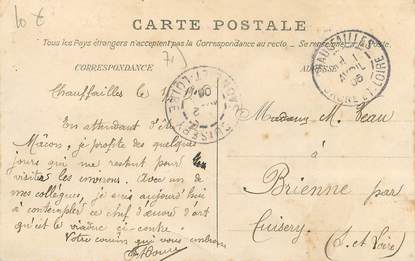 10 €
71
CARTE POSTALE
Tous les Pays étrangers n'acceptent pas la Correspondance au recto. Se renseigner à la Poste.
CORRESPONDANCE
ADRESSE
CHAUFFAILLES
SAONE-ET-LOIRE
CUISERY
SAONE-ET-LOIRE
Chauffailles le
En attendant d'être
Mâcon, je profite des quelques
jours qui me restent pour
visiter les environs. Avec un de
mes collègues, je suis aujourd'hui
à contempler ce chef d'œuvre d'art
qu'est le viaduc ci-contre.
Votre cousin qui vous embrasse
Madame M. Peau
à
Brienne par
Cuisery
(S. et Loire)